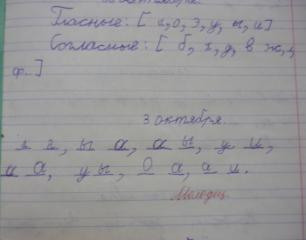 Гласные: [ а, о, э, у, ы, и ]
Согласные: [ б, г, д, в ж, ц
ф.. ]
3 октября.
ы а, а ы, у и,
а а, у ы, О а, а и.
Молодец